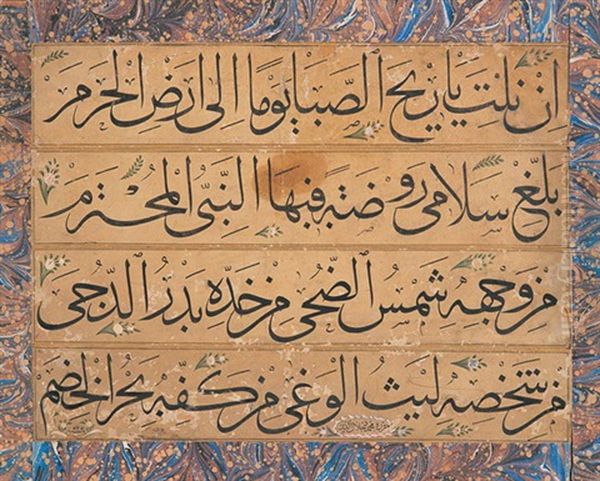 ان نلت یا ریح الصبا یوما الی ارض الحرم
بلغ سلامی روضة فیها النبی المحترم
من وجهه شمس الضحی من خده بدر الدجی
من شخصه لیث الوغی من کفه بحر الخضم